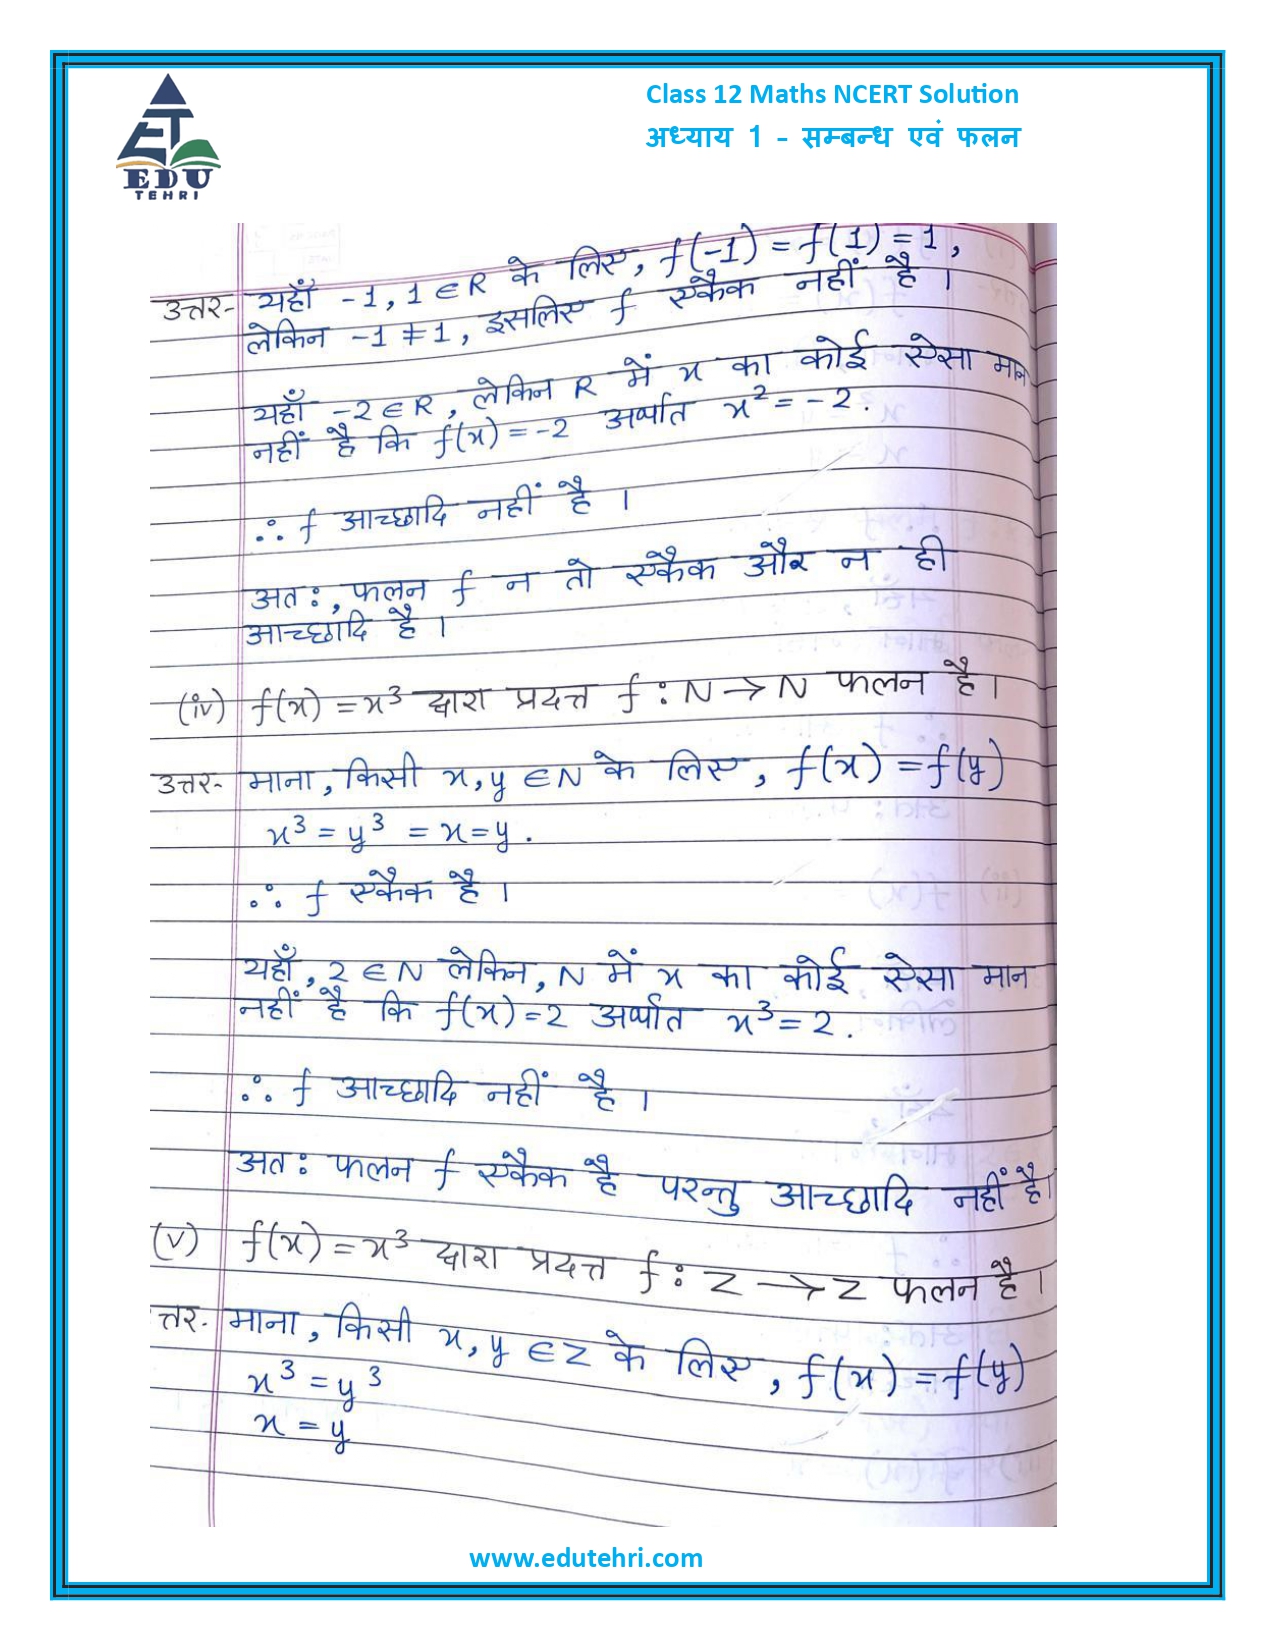 Class 12 Maths NCERT Solution
अध्याय 1 - सम्बन्ध एवं फलन
ET
EDU
TEHRI
उत्तर- यहाँ -1, 1 ∈ R के लिए, f(-1) = f(1) = 1,
लेकिन -1 ≠ 1, इसलिए f एकैक नहीं है ।
यहाँ -2 ∈ R, लेकिन R में x का कोई ऐसा मान
नहीं है कि f(x) = -2 अर्थात x² = -2.
∴ f आच्छादि नहीं है ।
अतः, फलन f न तो एकैक और न ही
आच्छादि है ।
(iv) f(x) = x³ द्वारा प्रदत्त f : N → N फलन है ।
उत्तर- माना, किसी x, y ∈ N के लिए, f(x) = f(y)
x³ = y³ = x = y.
∴ f एकैक है ।
यहाँ, 2 ∈ N लेकिन, N में x का कोई ऐसा मान
नहीं है कि f(x) = 2 अर्थात x³ = 2.
∴ f आच्छादि नहीं है ।
अतः फलन f एकैक है परन्तु आच्छादि नहीं है।
(v) f(x) = x³ द्वारा प्रदत्त f : Z → Z फलन है ।
त्तर- माना, किसी x, y ∈ Z के लिए, f(x) = f(y)
x³ = y³
x = y
www.edutehri.com